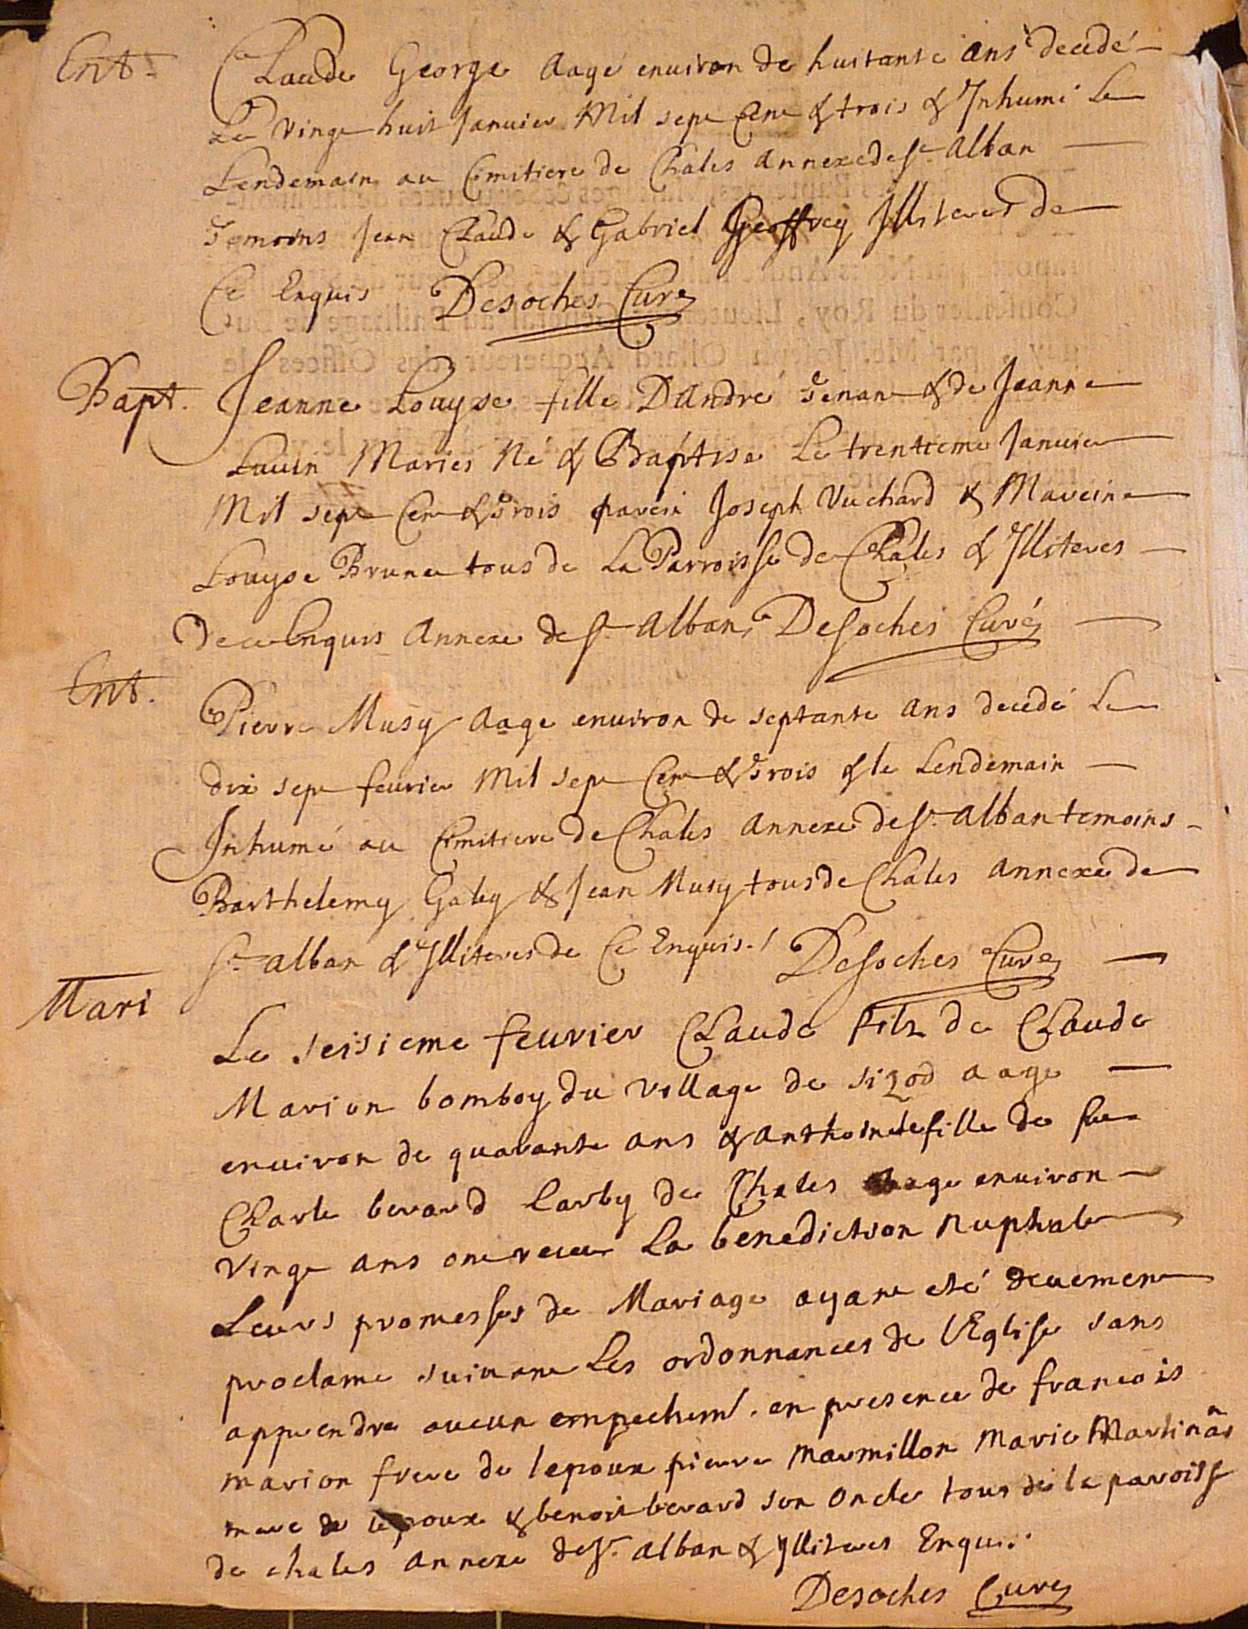 Ent.
Claude George Aagé environ de huitante ans decedé
Le vingt huit Janvier Mil sept Cent & trois & Inhumé Le
Lendemain au Cimitiere de Chales Annexe de St. Alban
Temoins Jean Claude & Gabriel Geoffrey Illiteres de
Ce Enquis Desoches Curé
Bapt. Jeanne Louyse fille D'Andre & de Jeanne
Mariés Né & Baptise Le trentieme Janvier
Mil sept Cent & Trois parein Joseph Vuchard & Mareine
Louyse Brunet tous de La Parroisse de Chales & Illiteres
de ce Enquis Annexe de St. Alban Desoches Curé
Ent.
Pierre Musy Aage environ de septante Ans decedé Le
dix sept fevrier Mil sept Cent & Trois & le Lendemain
Inhumé au Cimitiere de Chales Annexe de St. Alban temoins
Barthelemy Galey & Jean Musy tous de Chales Annexe de
St. Alban & Illiteres de Ce Enquis. Desoches Curé
Mari
Le seisieme fevrier Claude filz de Claude
Marion bomboy du village de aage
environ de quarante ans & anthoinete fille de feu
Charle berard Larby de Chales aage environ
vingt ans ont receu La benediction nuptiale
Leurs promesses de Mariage ayant eté deuement
proclame suivant Les ordonnances de l'Eglise sans
apprendre aucun empechemt. en presence de francois
marion frere de lepoux pierre marmillon Marie Martinãn
mere de lepoux & benoit berard son oncle tous de la paroisse
de chales annexe de St. alban & ylliteres Enquis.
Desoches Curé